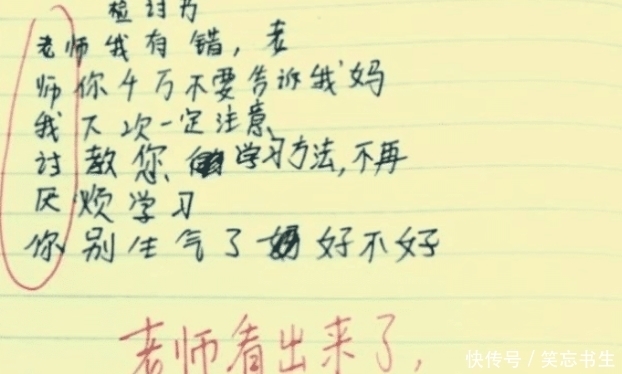 检讨书
老师我有错，老
师你千万不要告诉我妈
我下次一定注意、
讨教您、学习方法，不再
厌烦学习
你别生气了好不好
老师看出来了，
快传号／笑忘书生